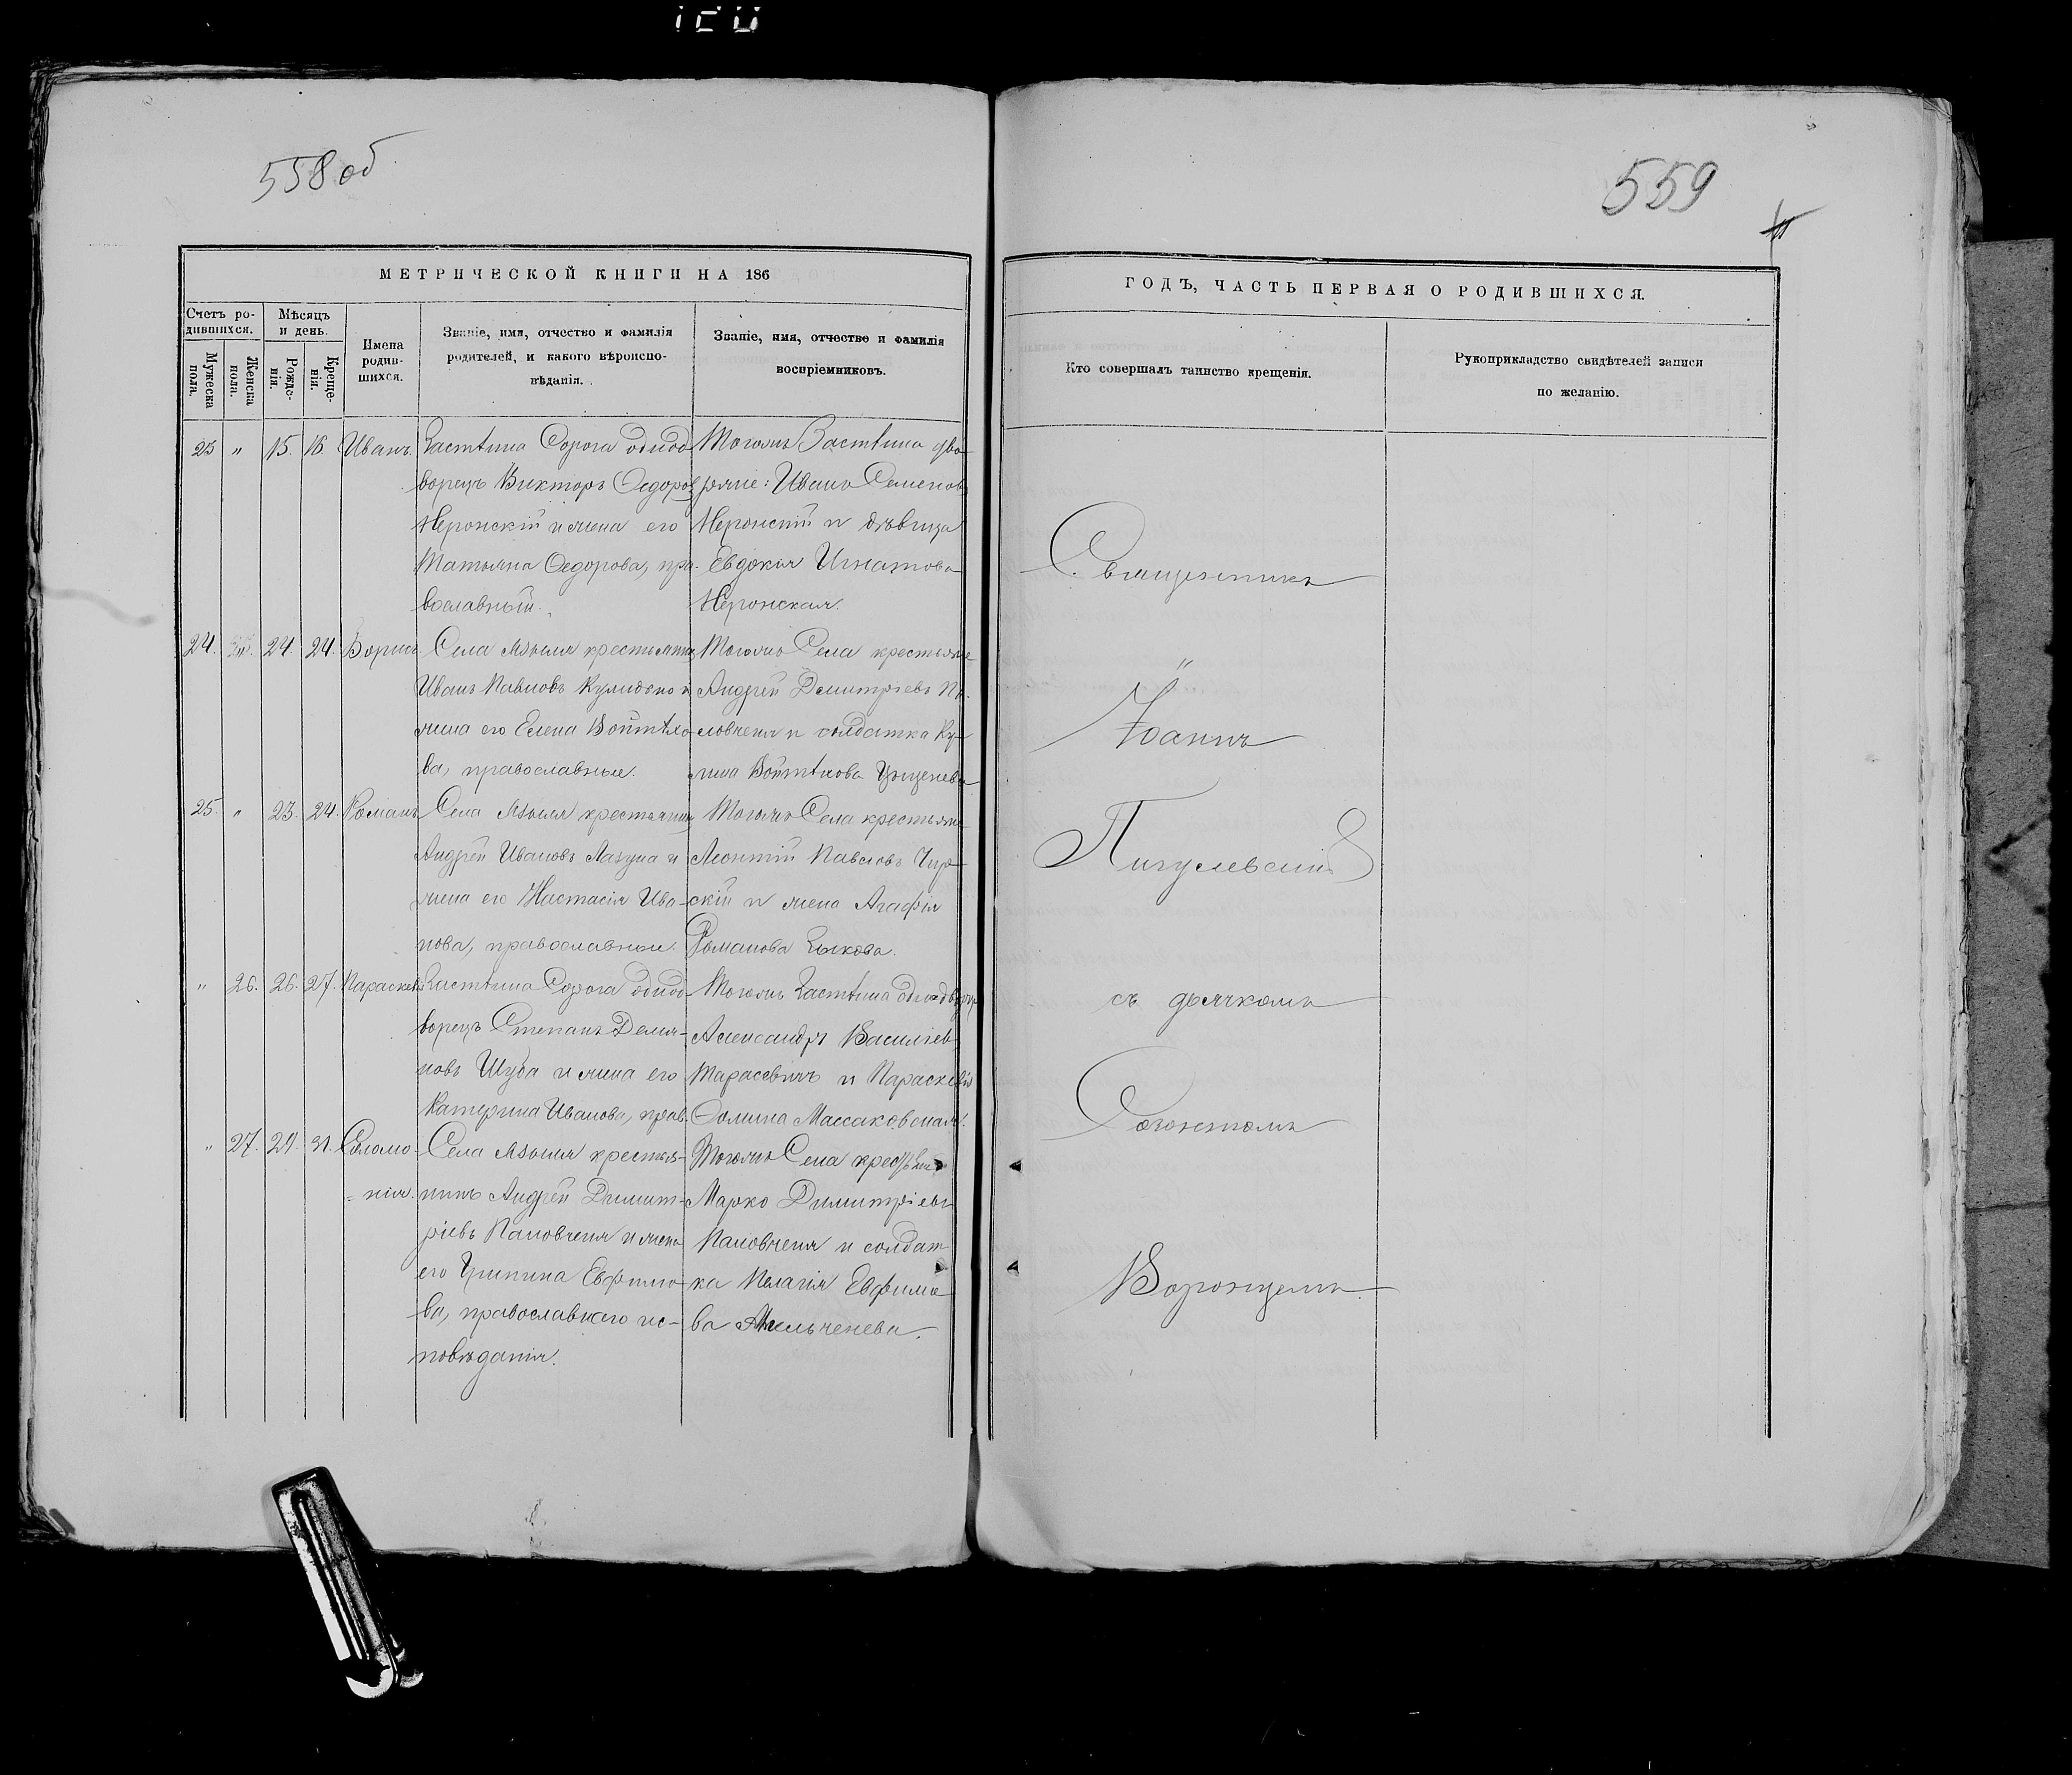 558 об
559
МЕТРИЧЕСКОЙ КНИГИ НА 186
Счетъ родившихся.
Мужеска пола.
Женска пола.
Мѣсяцъ и день.
Рожденія.
Крещенія.
Имена родившихся.
Званіе, имя, отчество и фамилія
родителей, и какого вѣроиспо-
вѣданія.
Званіе, имя, отчество и фамилія
воспріемниковъ.
23 " 15. 16. Иванъ.
Застѣнка Сорога однод
ворецъ Викторъ Ѳедоров
Неронскій и жена его
Татьяна Ѳедорова, пра-
вославный.
Тогожъ Застѣнка дво-
ряне: Иванъ Семеновъ
Неронскій и дѣвица
Евдокія Игнатова
Неронская.
24. 24. 24. Борисъ
Села крестьянинъ
Иванъ Павловъ и
жена его Елена Войтѣхо-
ва, православные.
Тогожъ Села крестьяне
Андрей Димитріевъ
и солдатка
Войтѣхова
25. " 23. 24. Романъ
Села крестьянинъ
Андрей Ивановъ Лазука и
жена его Настасія Ива-
нова, православные.
Тогожъ Села крестьяне
Леонтій Павловъ
и жена Агафія
Романова
" 26. 26. 27. Параскевія
Застѣнка Сорога однод
ворецъ Степанъ Демья-
новъ Шуба и жена его
Катерина Иванова, прав.
Тогожъ Застѣнка однодворецъ
Александръ Василіев
Тарасевичъ и Параскевія
Ѳомина Массаковская.
" 27. 29. 31. Соломо-
нія.
Села крестья-
нинъ Андрей Димит-
ріевъ Паловченя и жена
его Евфимо-
ва, православнаго ис-
повѣданія.
Тогожъ Села
Марко Димитріевъ
Паловченя и солдат
ка Пелагія Евфимо
ва
ГОДЪ, ЧАСТЬ ПЕРВАЯ О РОДИВШИХСЯ.
Кто совершалъ таинство крещенія.
Рукоприкладство свидѣтелей записи
по желанію.
Священникъ
Іоаннъ
Пигулевскій
съ дьячкомъ
Воронцемъ